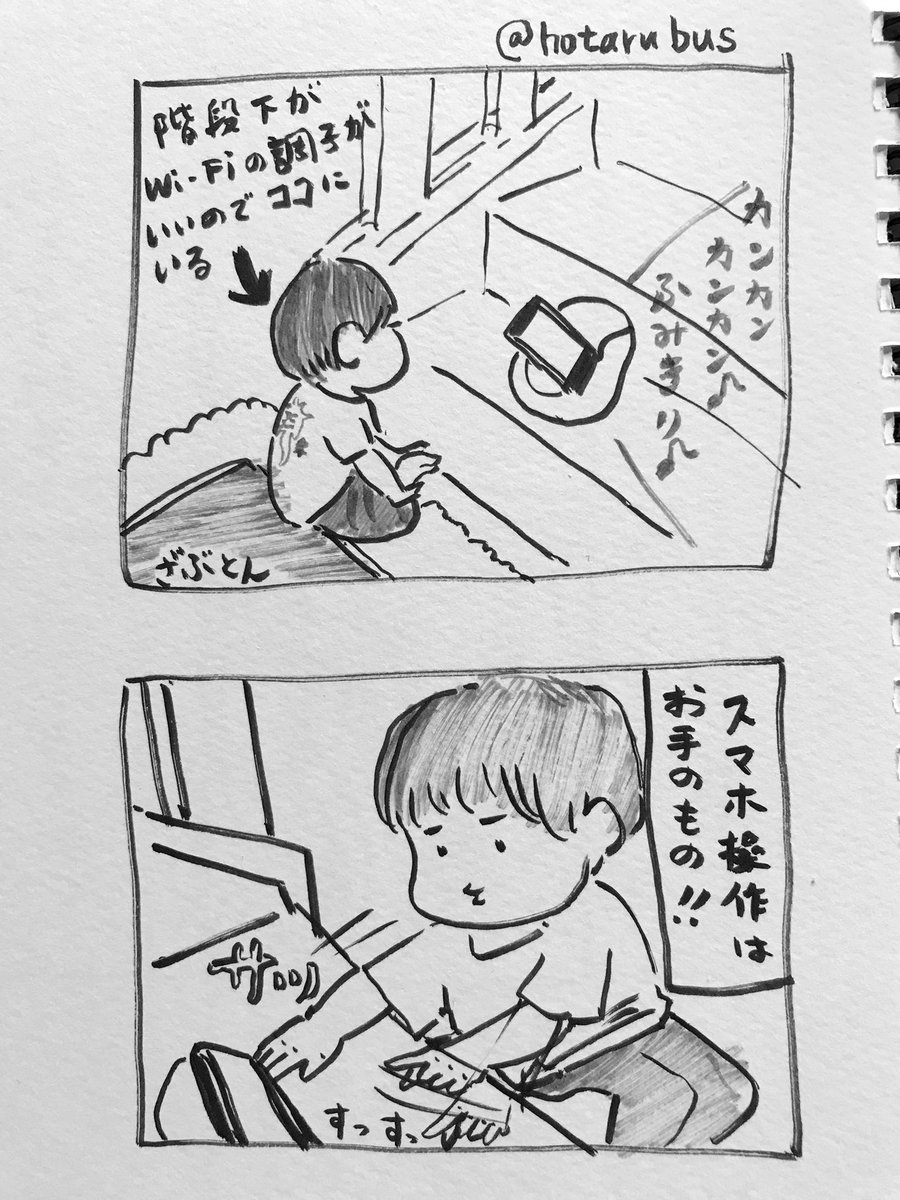 @hotarubus
階段下が
Wi-Fiの調子が
いいのでココに
いる
カンカン
カンカン♪
ふみきり♪
ざぶとん
スマホ操作は
お手のもの!!
サッ
すっすっ